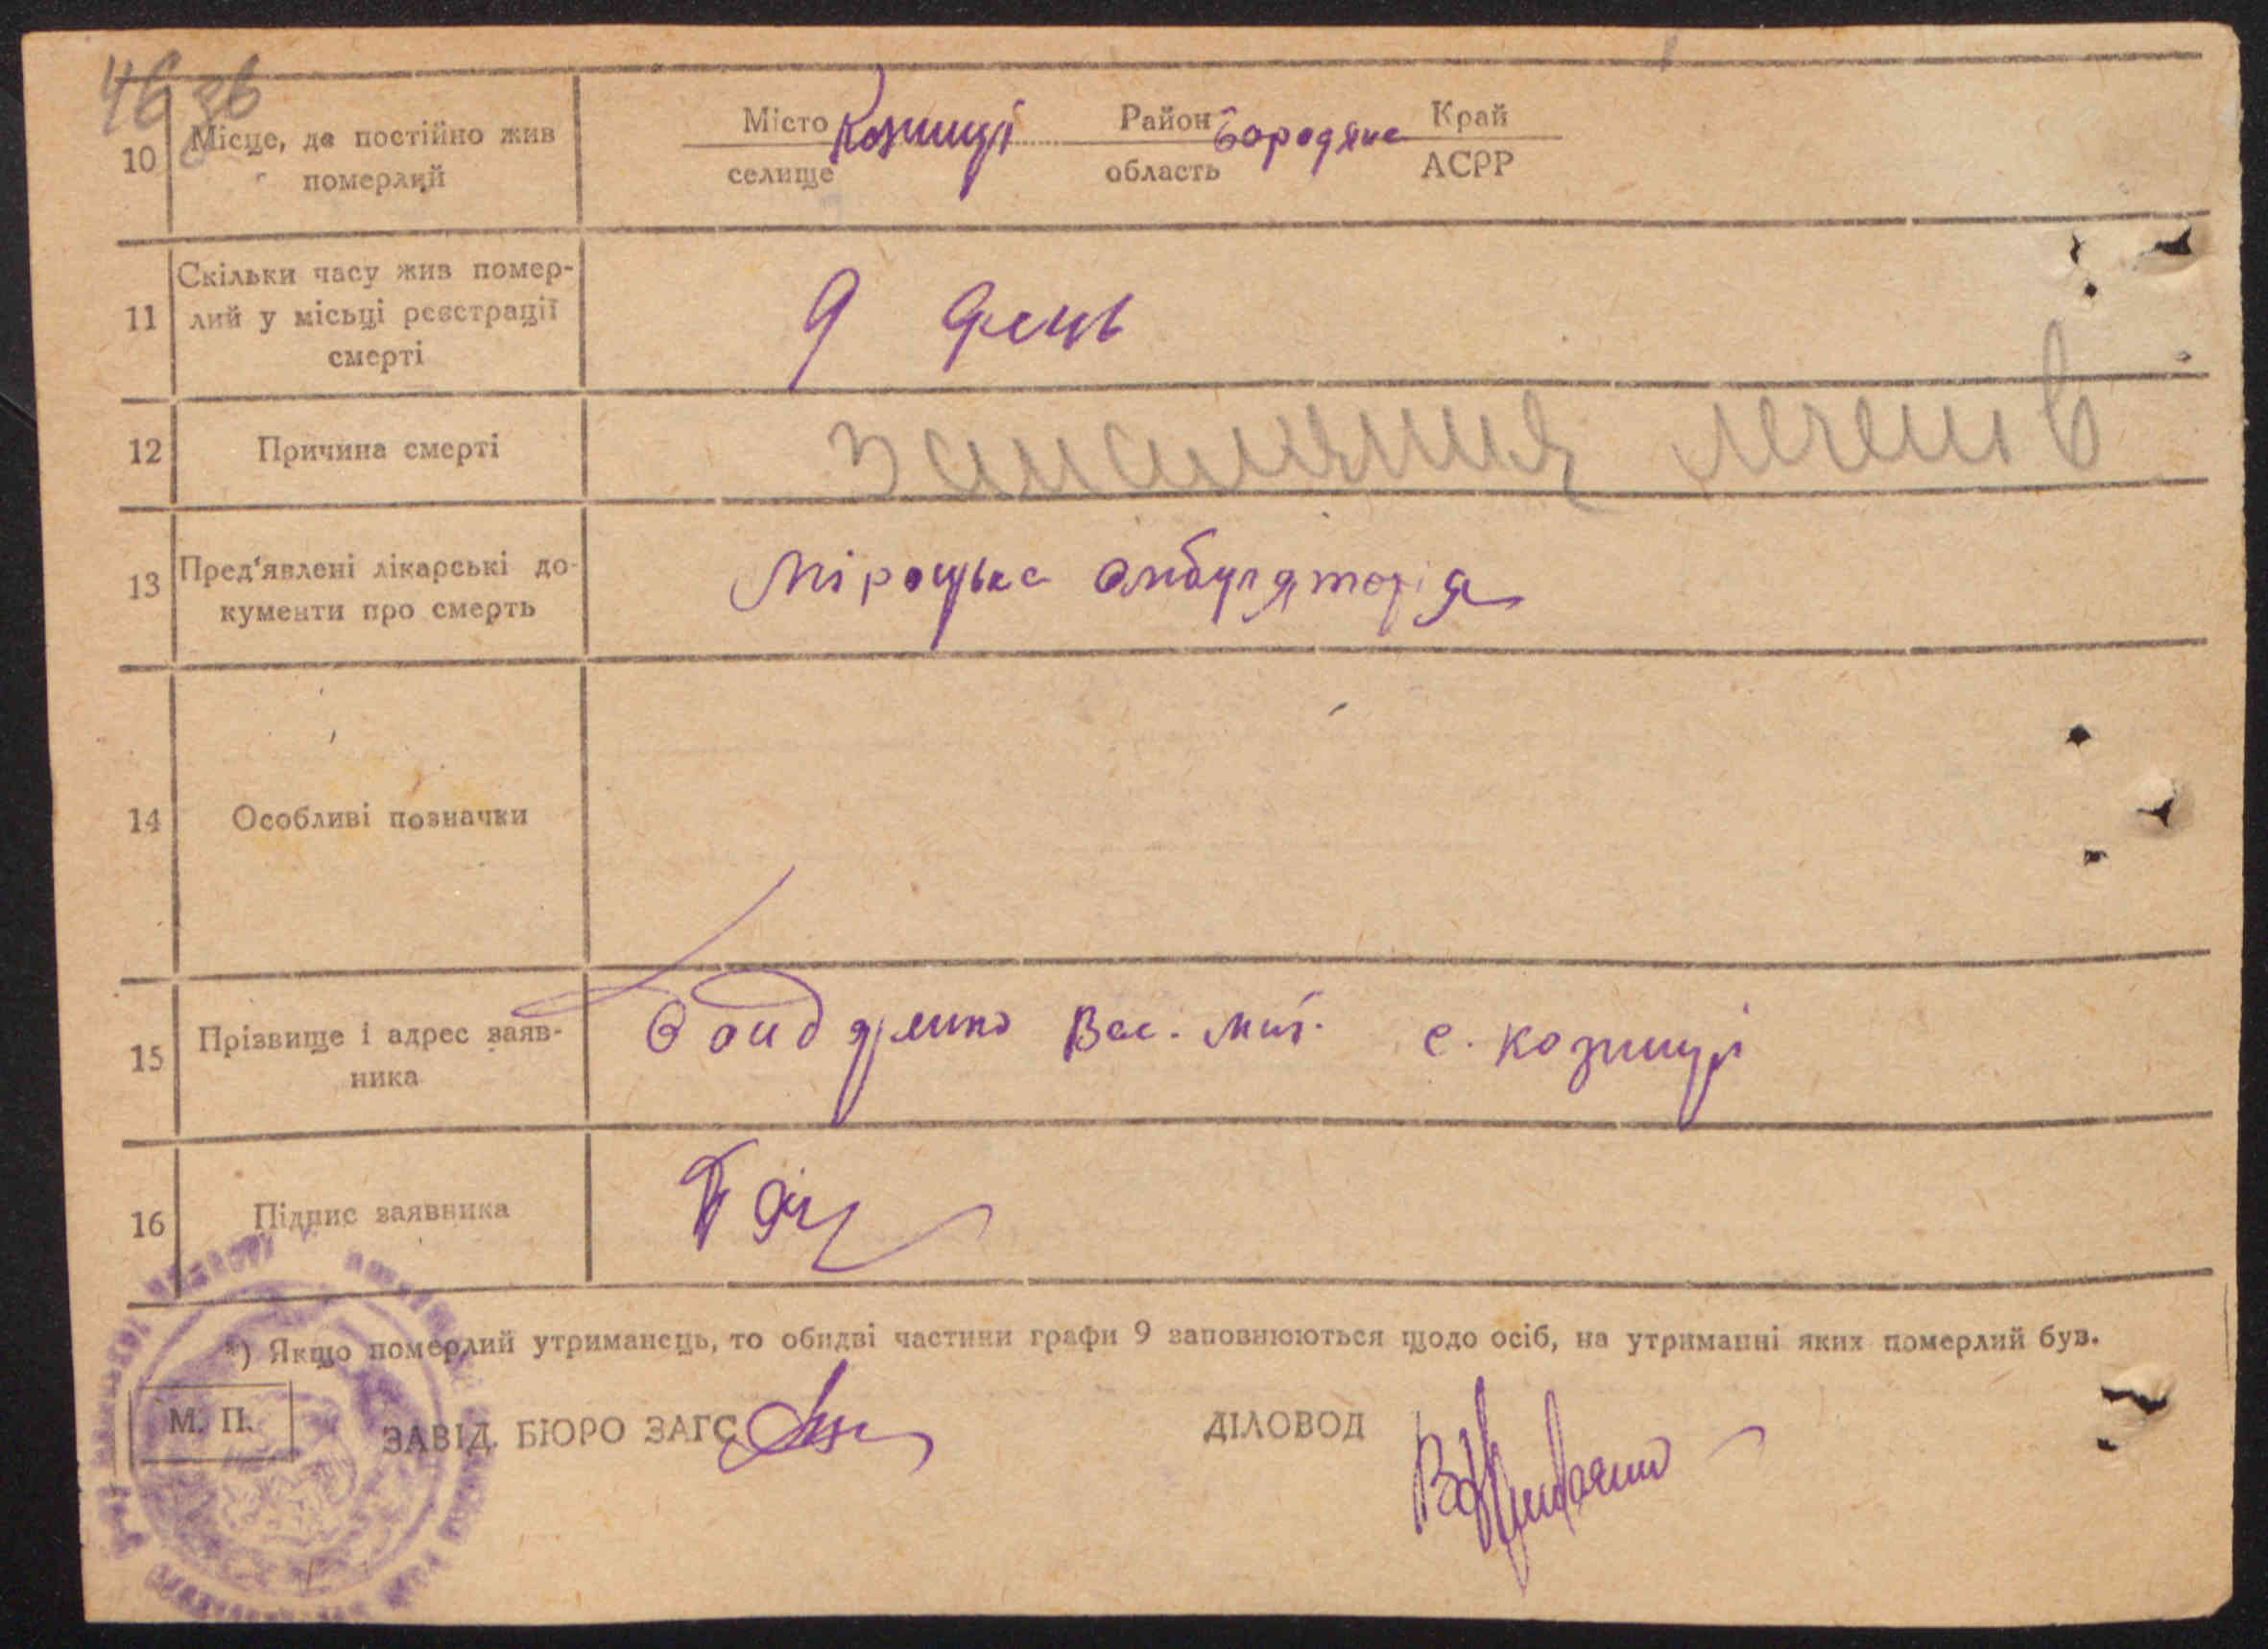 46 зв
10 Місце, де постійно жив померлий
Місто Козинці Район Бородянс Край
селище область АСРР
11 Скільки часу жив помер-
лий у місьці реєстрації
смерті
9 день
12 Причина смерті запалення легенів
13 Пред'явлені лікарські до-
кументи про смерть
Міроцька амбулаторія
14 Особливі позначки
15 Прізвище і адрес заяв-
ника
Вас. с. козинці
16 Підпис заявника
*) Якщо померлий утриманець, то обидві частини графи 9 заповнюються щодо осіб, на утриманні яких померлий був.
М. П. ЗАВІД. БЮРО ЗАГС ДІЛОВОД